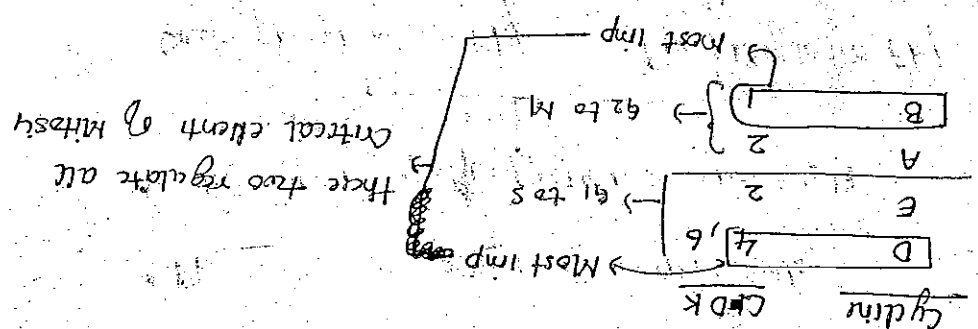 Cycline CDK
D 4, 6 → Most imp
E 2 → G1 to S
A 2
B 1 → G2 to M
→ Most imp
→ these two regulate all
Critical events of Mitosis